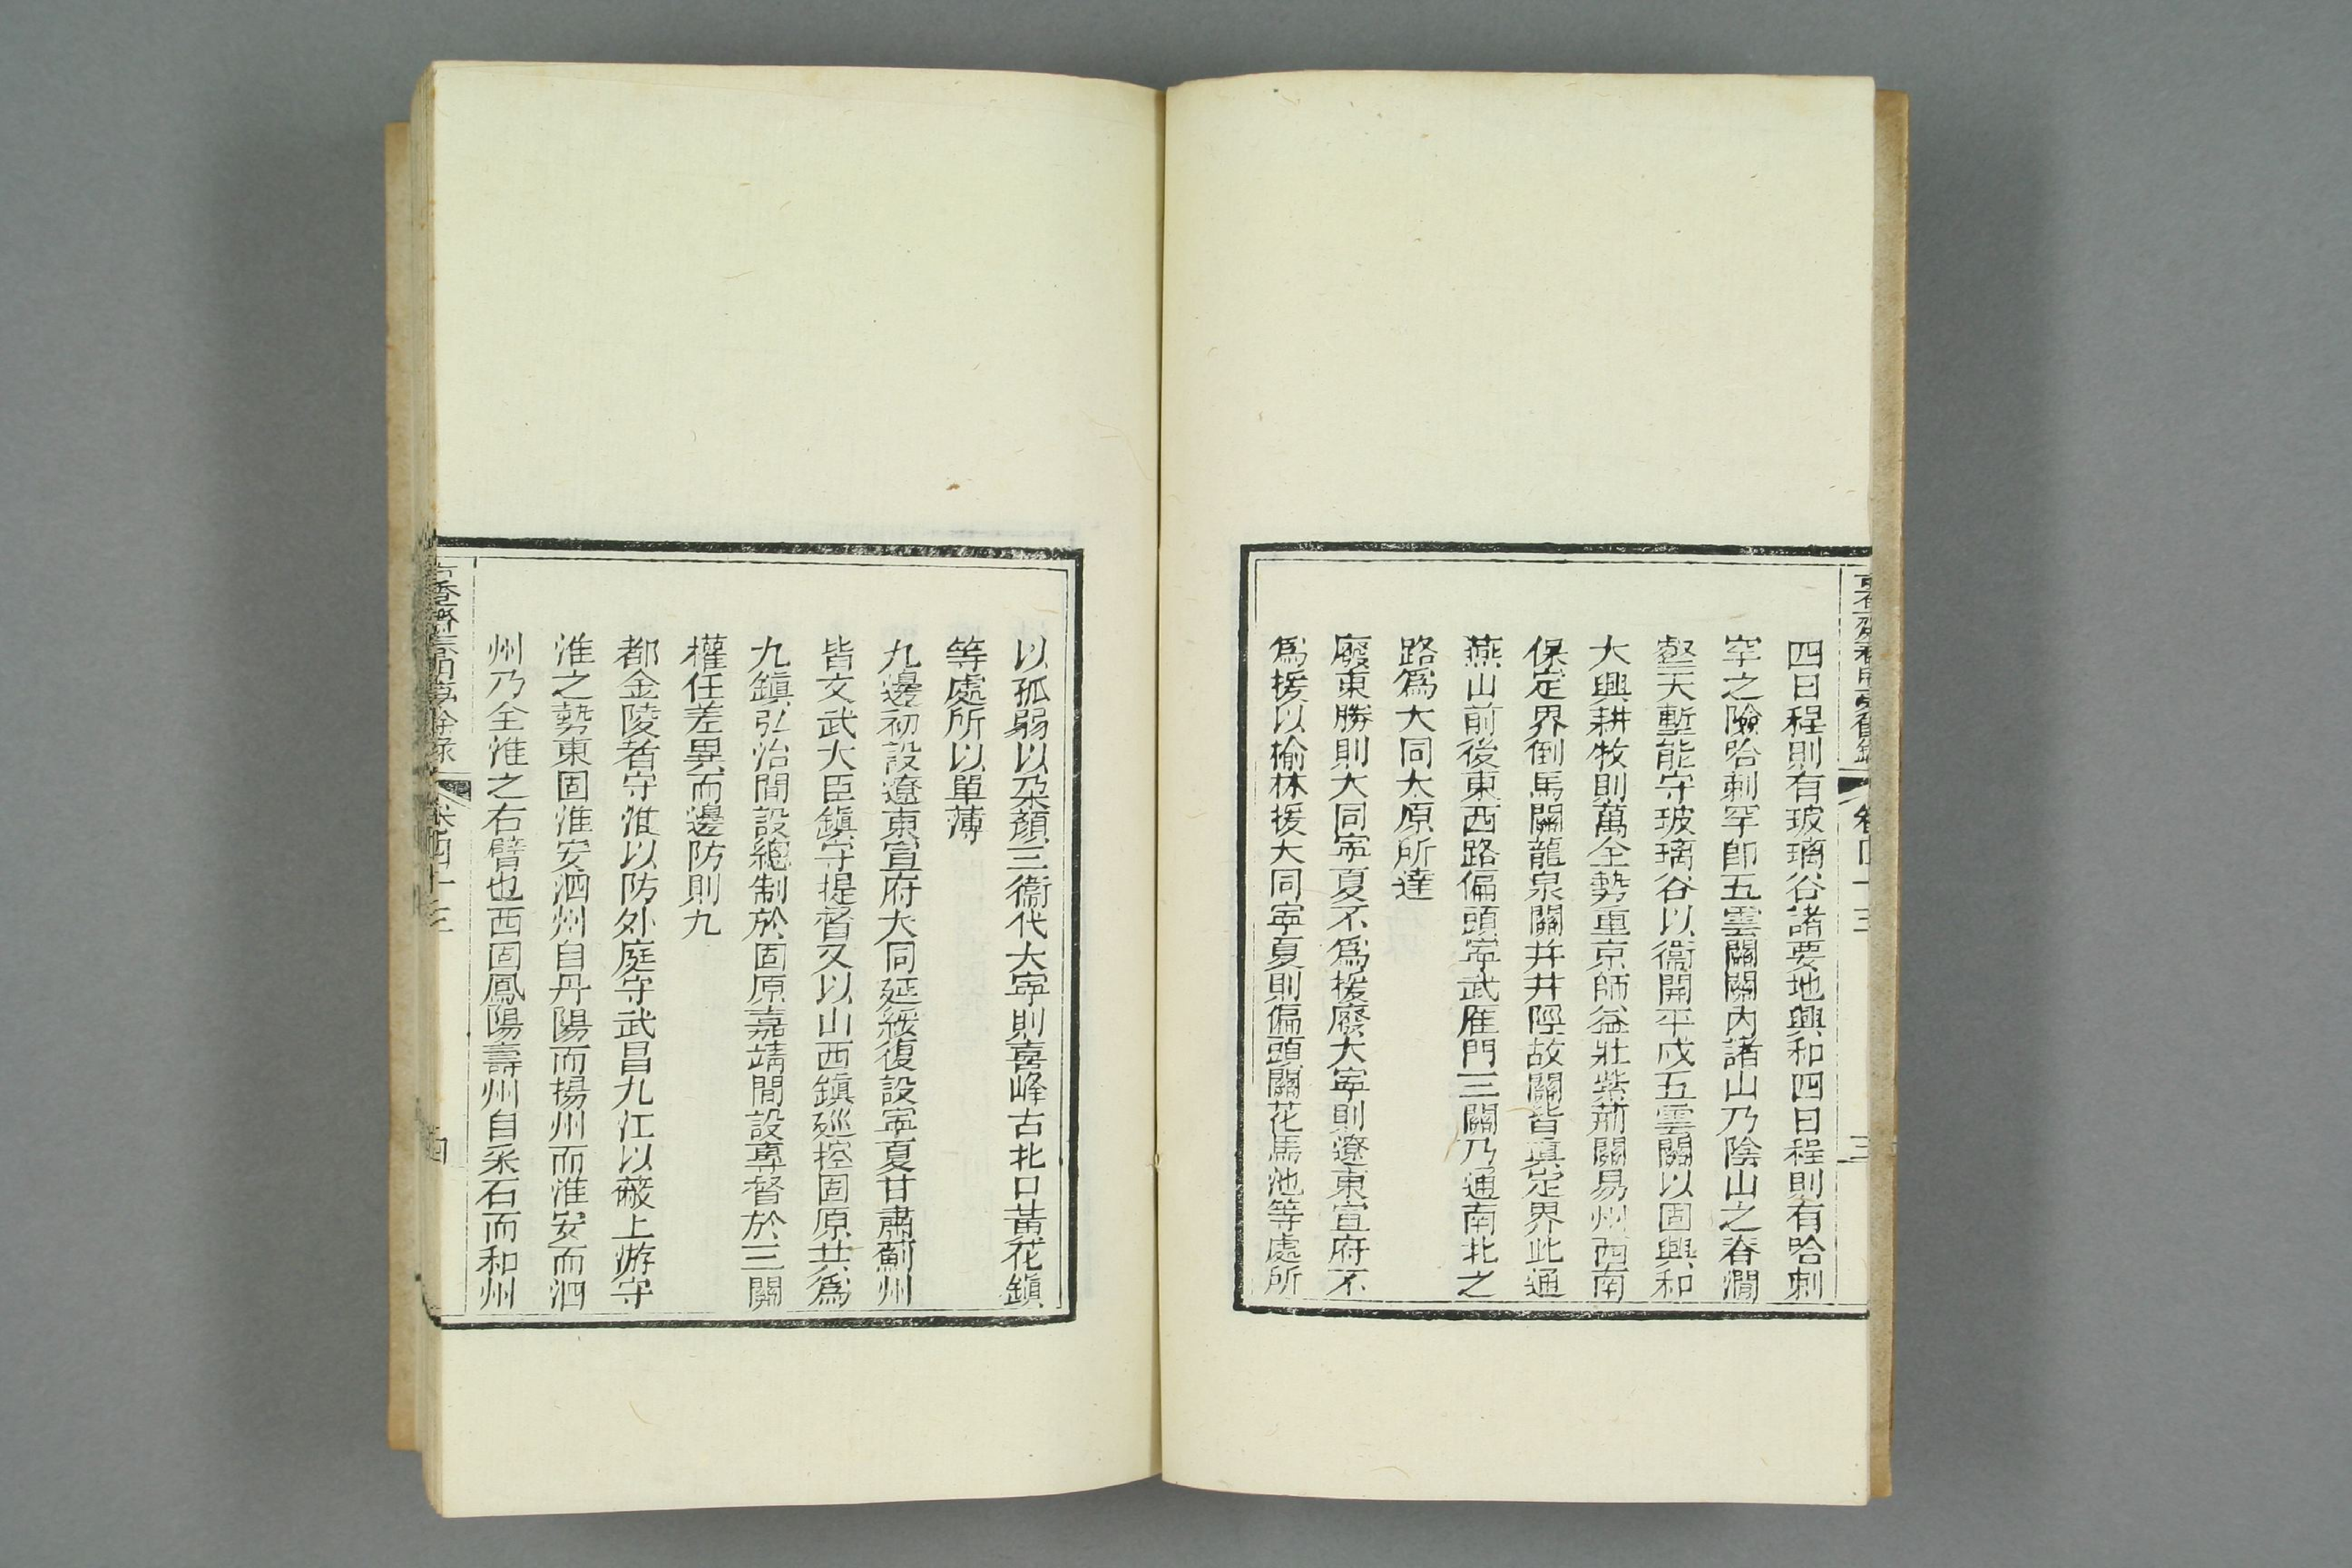 四日程則有玻瓈谷諸要地興和四日程則有哈剌
罕之險哈剌罕即五雲關關內諸山乃陰山之脊澗
壑天塹能守玻瓈谷以衞開平戍五雲關以固興和
大興耕牧則萬全勢重京師益壯紫荊關易州西南
保定界倒馬關龍泉關并井陘故關皆眞定界此通
燕山前後東西路偏頭寧武雁門三關乃通南北之
路爲大同太原所達
廢東勝則大同寧夏不爲援廢大寧則遼東宣府不
爲援以榆林援大同寧夏則偏頭關花馬池等處所
以孤弱以朶顏三衞代大寧則喜峰古北口黃花鎭
等處所以單薄
九邊初設遼東宣府大同延綏復設寧夏甘肅薊州
皆文武大臣鎭守提督又以山西鎭廵控固原共爲
九鎭弘治間設總制於固原嘉靖間設專督於三關
權任差異而邊防則九
都金陵者守淮以防外庭守武昌九江以蔽上游守
淮之勢東固淮安泗州自丹陽而揚州而淮安而泗
州乃全淮之右臂也西固鳳陽壽州自采石而和州
卷四十三
四